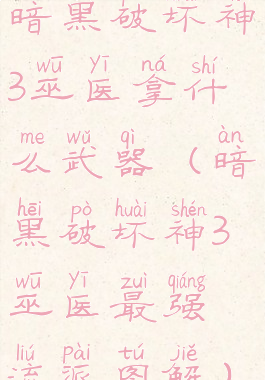 暗黑破坏神
wū yī ná shí
3巫医拿什
me wǔ qì àn
么武器（暗
hēi pò huài shén
黑破坏神3
wū yī zuì qiáng
巫医最强
liú pài tú jiě
流派图解）